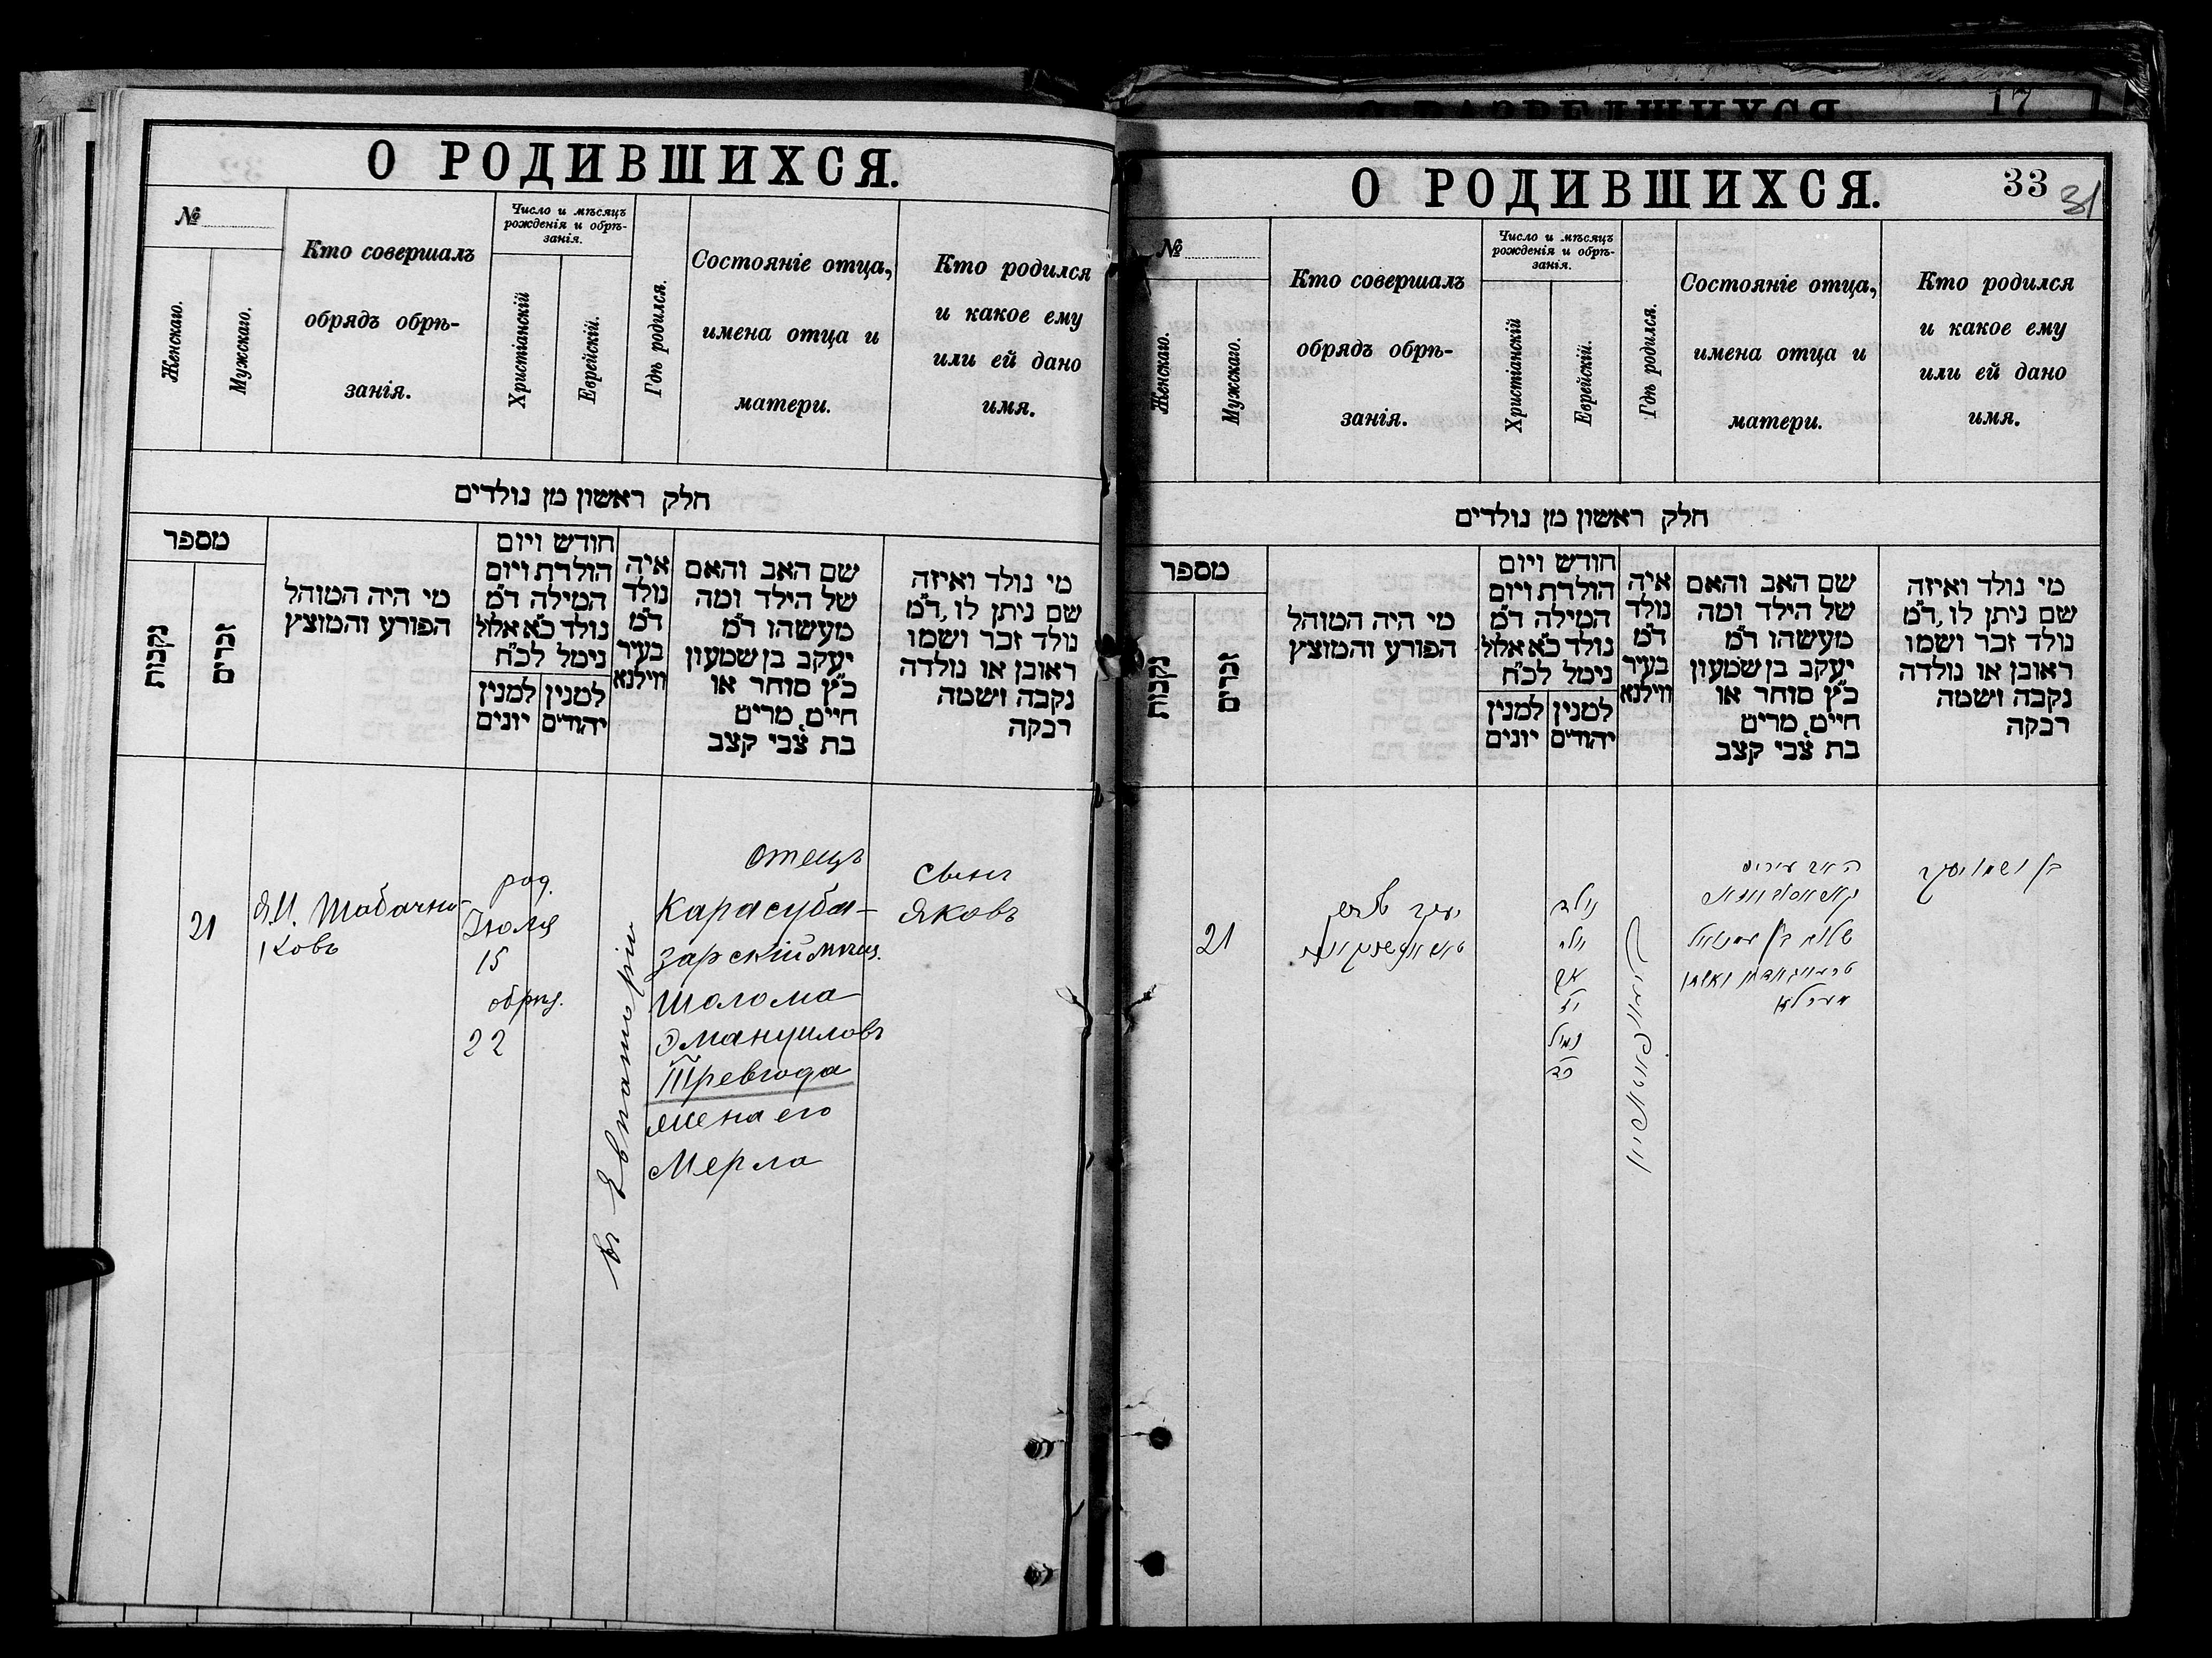 О РОДИВШИХСЯ.
№
Женскаго.
Мужскаго.
Кто совершалъ
обрядъ обрѣ-
занія.
Число и мѣсяцъ
рожденія и обрѣ-
занія.
Христіанскій
Еврейскій.
Гдѣ родился.
Состояніе отца,
имена отца и
матери.
Кто родился
и какое ему
или ей дано
имя.
חלק ראשון מן נולדים
מספר
נקבות
זכרים
מי היה המוהל
הפורע והמוצץ
חודש ויום
הולדת ויום
המילה ד״מ
נולד כ״א אלול
נימל לכ״ח
למנין יהודים
למנין יונים
איה
נולד
ד״מ
בעיר
ווילנא
שם האב והאם
של הילד ומה
מעשהו ד״מ
יעקב בן שמעון
כ״ץ סוחר או
חיים, מרים
בת צבי קצב
מי נולד ואיזה
שם ניתן לו, ד״מ
נולד זכר ושמו
ראובן או נולדה
נקבה ושמה
רבקה
21
Я.И. Табачни-
ковъ
род.
Іюля
15
обрѣз.
22
въ Евпаторіи
отецъ
Карасуба-
зарскій мѣщ.
Шолома
Эмануиловъ
Тревгода
жена его
Мерла
Сынъ
Яковъ
17
О РАЗВЕДШИХСЯ
О РОДИВШИХСЯ.
33
31
№
Женскаго.
Мужскаго.
Кто совершалъ
обрядъ обрѣ-
занія.
Число и мѣсяцъ
рожденія и обрѣ-
занія.
Христіанскій
Еврейскій.
Гдѣ родился.
Состояніе отца,
имена отца и
матери.
Кто родился
и какое ему
или ей дано
имя.
חלק ראשון מן נולדים
מספר
נקבות
זכרים
מי היה המוהל
הפורע והמוצץ
חודש ויום
הולדת ויום
המילה ד״מ
נולד כ״א אלול
נימל לכ״ח
למנין יהודים
למנין יונים
איה
נולד
ד״מ
בעיר
ווילנא
שם האב והאם
של הילד ומה
מעשהו ד״מ
יעקב בן שמעון
כ״ץ סוחר או
חיים, מרים
בת צבי קצב
מי נולד ואיזה
שם ניתן לו, ד״מ
נולד זכר ושמו
ראובן או נולדה
נקבה ושמה
רבקה
21
יעקב
נולד
נמול
שלום בן עמנואל
בן ושמו יעקב